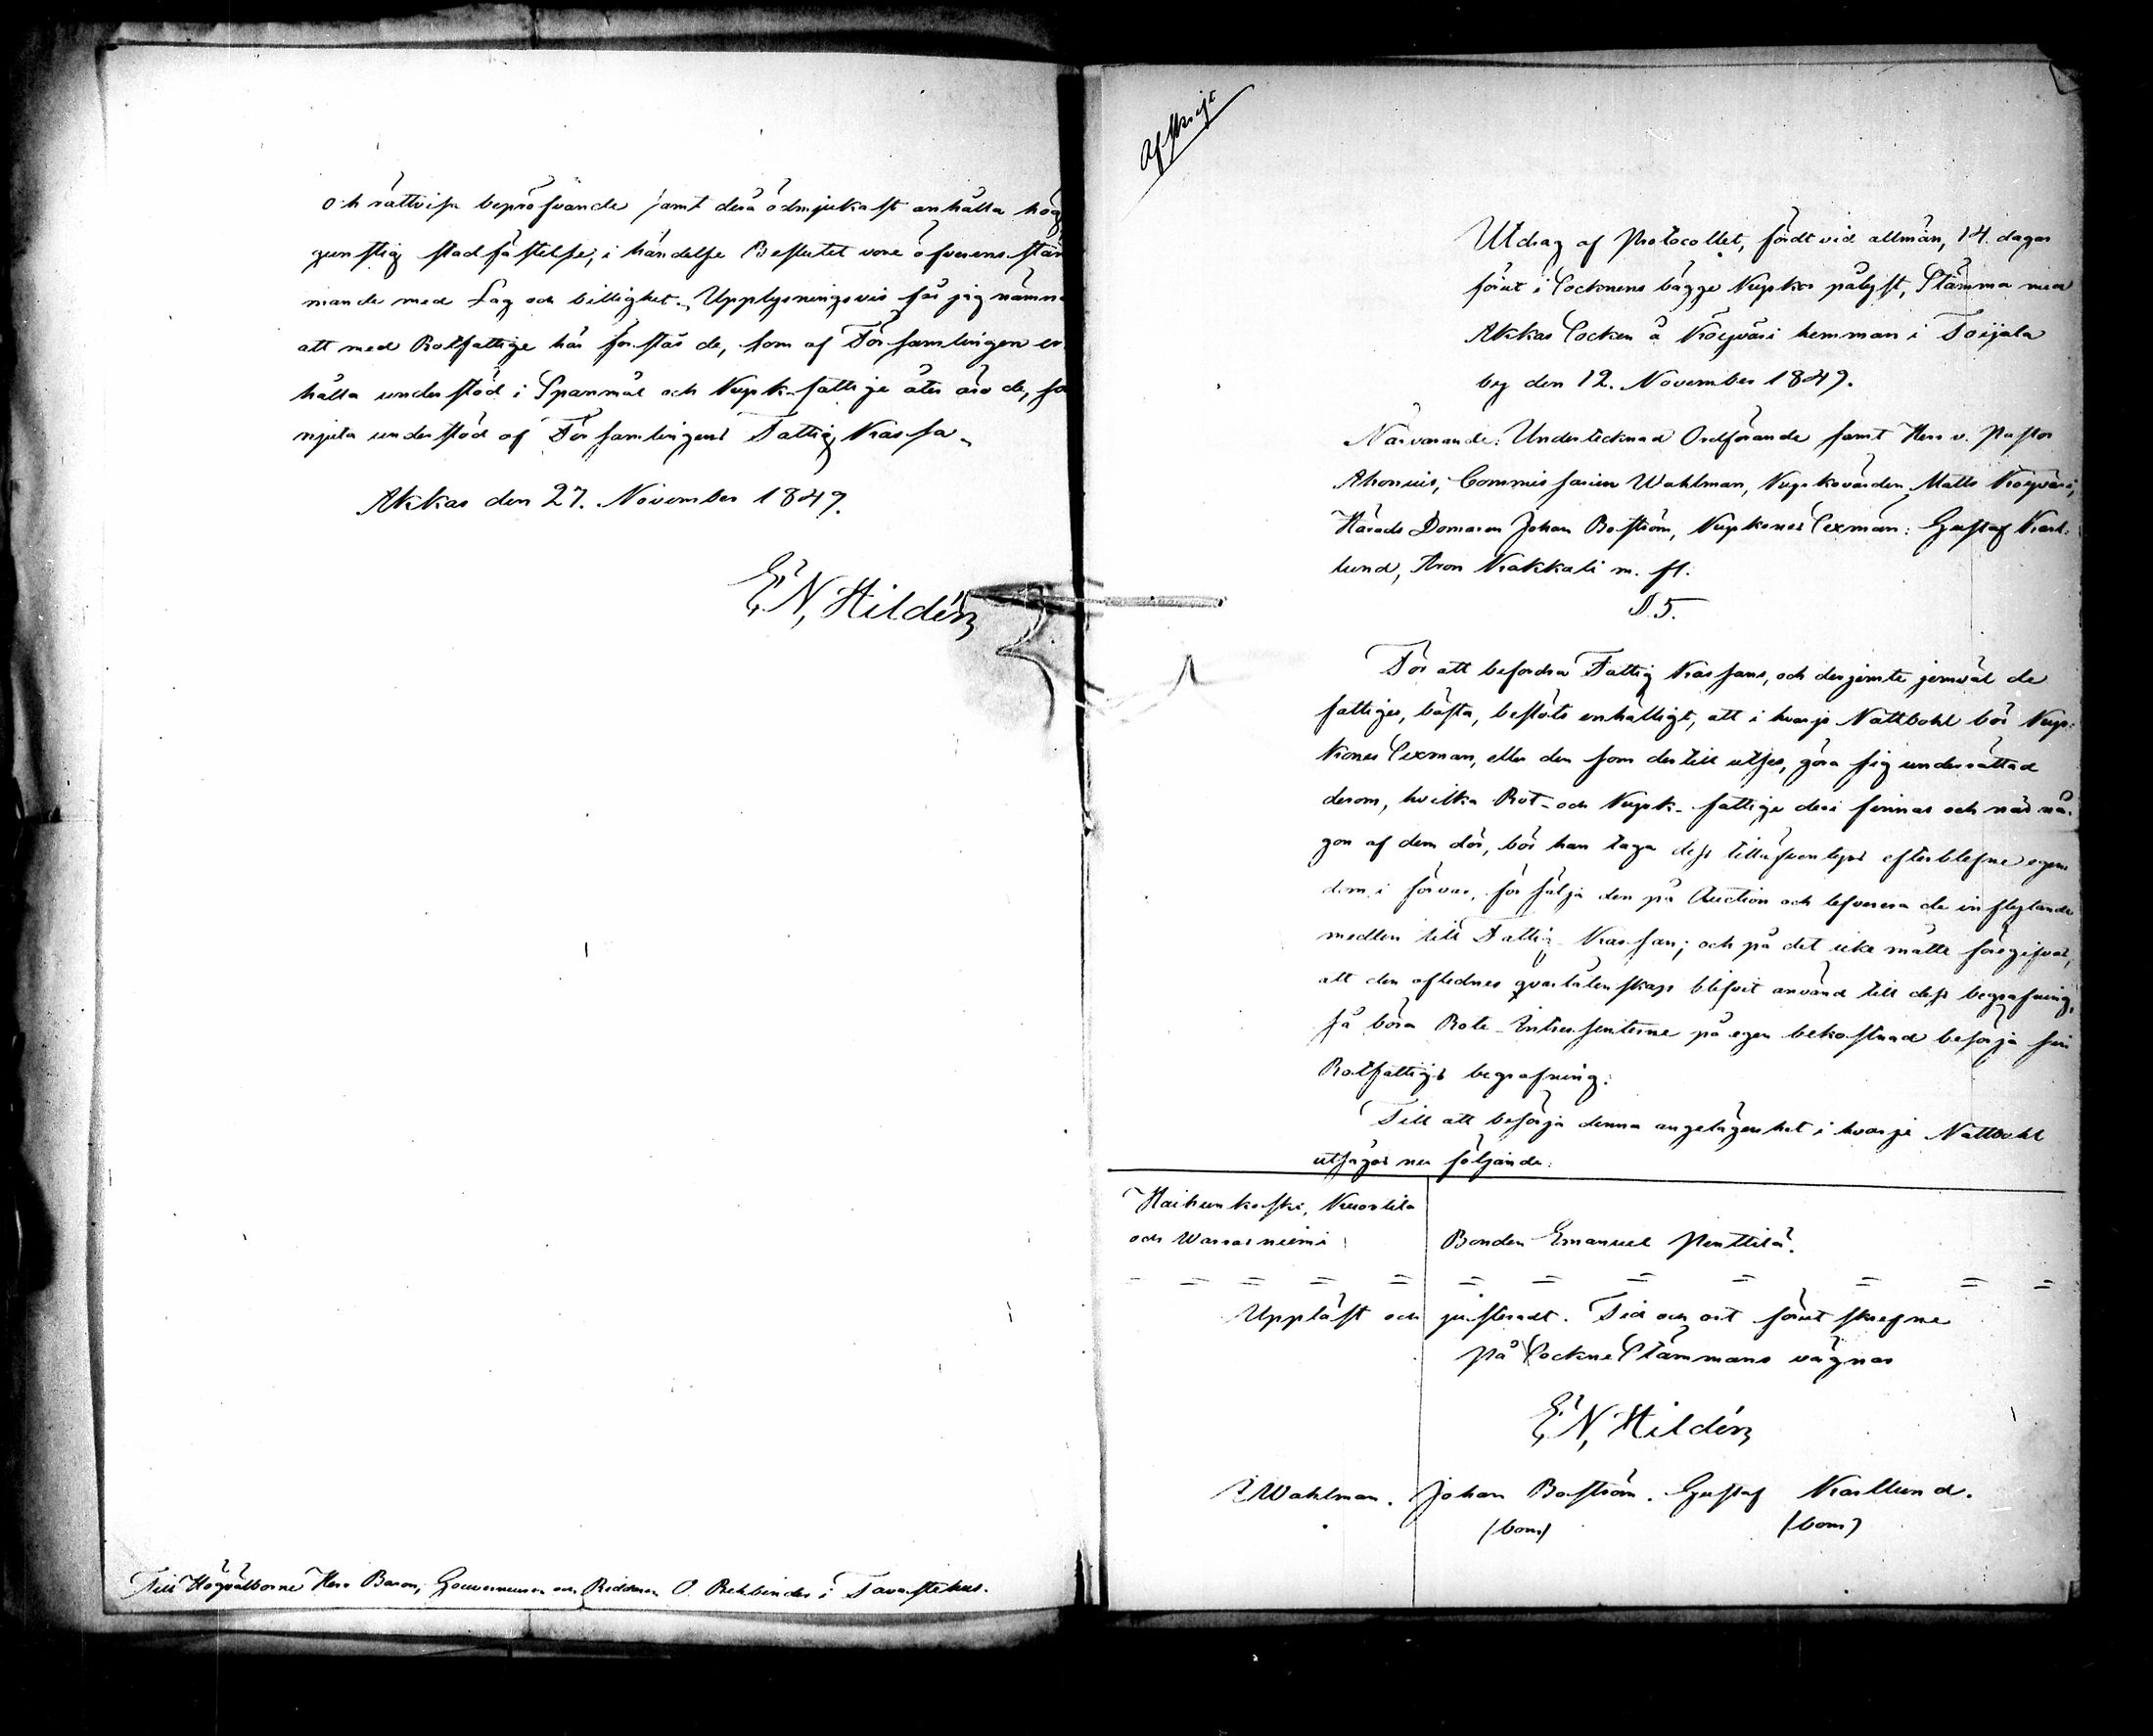 och rättvisa bepröfvande samt derå ödmjukast anhålla hög
gunstig stadfästelse, i händelse Beslutet vore öfverensstäm
mande med Lag och billighet. Upplysningsvis får jag nämna
att med Rotfattige här förstås de, som af Församlingen er
hålla understöd i Spanmål och Kyrk-fattige åter äro de, so
njuta understöd af Församlingens Fattig Kassa.
Akkas den 27. November 1849.
E, N, Hildén
Till Högvälborne Herr Baron, Gouverneuren och Riddaren O. Rehbinder i Tavastehus.
Afskrift
Utdrag af Protocollet, fördt vid allmän, 14. dagar
förut i Socknens bägge Kyrkor pålyst, Stämma med
Akkas Socken å Köyväri hemman i Toijala
by den 12. November 1849.
Närvarande: Undertecknad Ordförande samt Herr v. Pastor
Ahonius, Commissarien Wahlman, Kyrkovärden Matts Köyväri,
Härads Domaren Johan Boström, Kyrkones Sexmän: Gustaf Karl-
lund, Aron Kakkali m. fl.
§ 5.
För att befordra Fattig Kassans, och derjemte jemväl de
fattiges, bästa, beslöts enhälligt, att i hvarje Nattbohl bör Kyr-
kones Sexman, eller den som dertill utses, göra sig underrättad
derom, hvilka Rot- och Kyrk-fattige deri finnas och när nå-
gon af dem dör, bör han taga dess tilläfventyrs efterblefne egen
dom i förvar, försälja den på Auction och lefverera de inflytande
medlen till Fattig-Kassan; och på det icke måtte föregifvas,
att den aflednes qvarlåtenskap blifvit använd till dess begrafning,
så böra Rote-Intressenterne på egen bekostnad besörja sin
Rotfattigs begrafning.
Till att besörja denna angelägenhet i hvarje Nattbohl
utsågos nu följande:
Haihunkoski, Kuortila
och Warrasniemi
Bonden Emanuel Penttilä.
Uppläst och justeradt. Tid och ort förut skrefne
På Sockne Stämmans vägnar
E, N, Hildén
Wahlman. Johan Boström. Gustaf Karllund.
(bom) (bom)